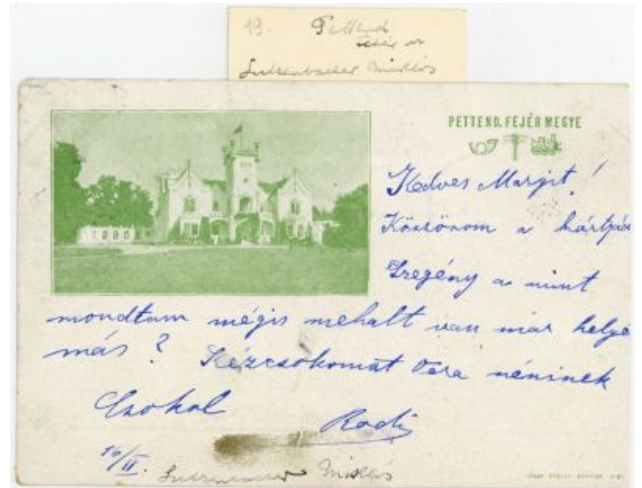 19. Pettend
Fejér m
Lutzenbacher Miklós
PETTEND, FEJÉR MEGYE
Kedves Margit!
Köszönöm a kártyád
Szegény a mint
mondtam mégis mehalt van már helye
más? Kézcsokomat Vera néninek
Csokol Radi
16/II.
Lutzenbacher Miklós